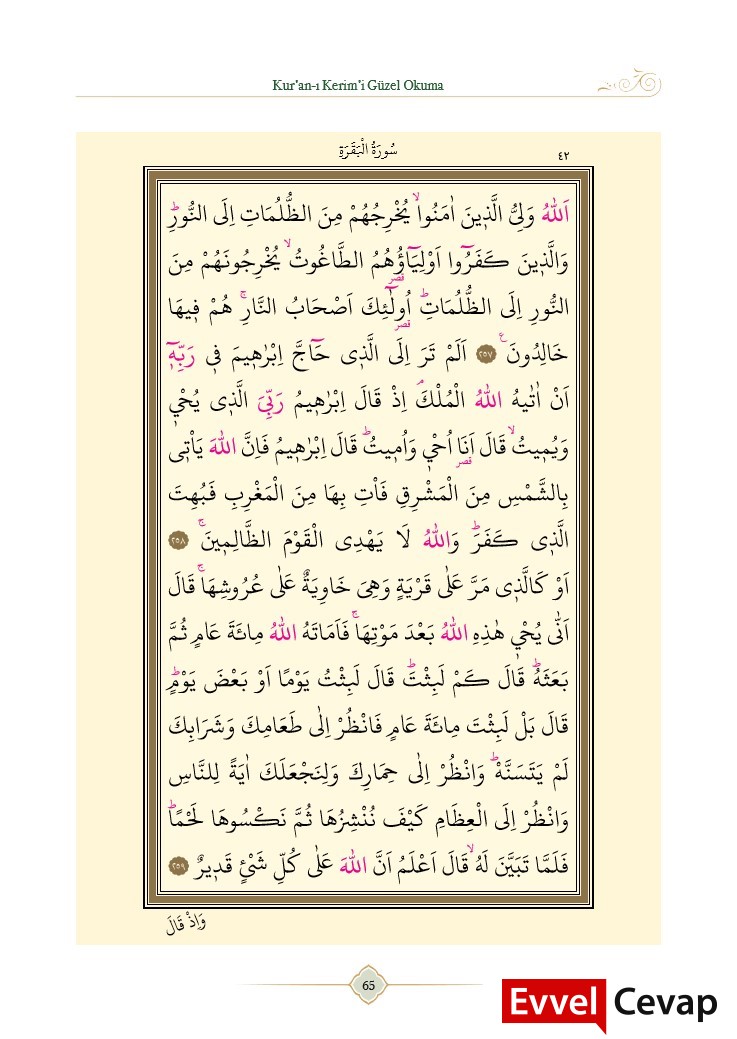 Kur'an-ı Kerim'i Güzel Okuma
سُورَةُ الْبَقَرَةِ
٤٢
اَللّٰهُ وَلِيُّ الَّذ۪ينَ اٰمَنُواۙ يُخْرِجُهُمْ مِنَ الظُّلُمَاتِ اِلَى النُّورِۜ
وَالَّذ۪ينَ كَفَرُٓوا اَوْلِيَٓاؤُ۬هُمُ الطَّاغُوتُۙ يُخْرِجُونَهُمْ مِنَ
قصر
النُّورِ اِلَى الظُّلُمَاتِۜ اُو۬لٰٓئِكَ اَصْحَابُ النَّارِۚ هُمْ ف۪يهَا
قصر
خَالِدُونَ۟ ﴿٢٥٧﴾ اَلَمْ تَرَ اِلَى الَّذ۪ي حَٓاجَّ اِبْرٰه۪يمَ ف۪ي رَبِّه۪ٓ
اَنْ اٰتٰيهُ اللّٰهُ الْمُلْكَۢ اِذْ قَالَ اِبْرٰه۪يمُ رَبِّيَ الَّذ۪ي يُحْي۪
وَيُم۪يتُۙ قَالَ اَنَا۬ اُحْي۪ وَاُم۪يتُۜ قَالَ اِبْرٰه۪يمُ فَاِنَّ اللّٰهَ يَأْت۪ي
قصر
بِالشَّمْسِ مِنَ الْمَشْرِقِ فَأْتِ بِهَا مِنَ الْمَغْرِبِ فَبُهِتَ
الَّذ۪ي كَفَرَۜ وَاللّٰهُ لَا يَهْدِي الْقَوْمَ الظَّالِم۪ينَۚ ﴿٢٥٨﴾
اَوْ كَالَّذ۪ي مَرَّ عَلٰى قَرْيَةٍ وَهِيَ خَاوِيَةٌ عَلٰى عُرُوشِهَاۚ قَالَ
اَنّٰى يُحْي۪ هٰذِهِ اللّٰهُ بَعْدَ مَوْتِهَاۚ فَاَمَاتَهُ اللّٰهُ مِائَةَ عَامٍ ثُمَّ
بَعَثَهُۜ قَالَ كَمْ لَبِثْتَۜ قَالَ لَبِثْتُ يَوْمًا اَوْ بَعْضَ يَوْمٍۜ
قَالَ بَلْ لَبِثْتَ مِائَةَ عَامٍ فَانْظُرْ اِلٰى طَعَامِكَ وَشَرَابِكَ
لَمْ يَتَسَنَّهْۜ وَانْظُرْ اِلٰى حِمَارِكَ وَلِنَجْعَلَكَ اٰيَةً لِلنَّاسِ
وَانْظُرْ اِلَى الْعِظَامِ كَيْفَ نُنْشِزُهَا ثُمَّ نَكْسُوهَا لَحْمًاۜ
فَلَمَّا تَبَيَّنَ لَهُۙ قَالَ اَعْلَمُ اَنَّ اللّٰهَ عَلٰى كُلِّ شَيْءٍ قَد۪يرٌ ﴿٢٥٩﴾
وَاِذْ قَالَ
65
Evvel Cevap